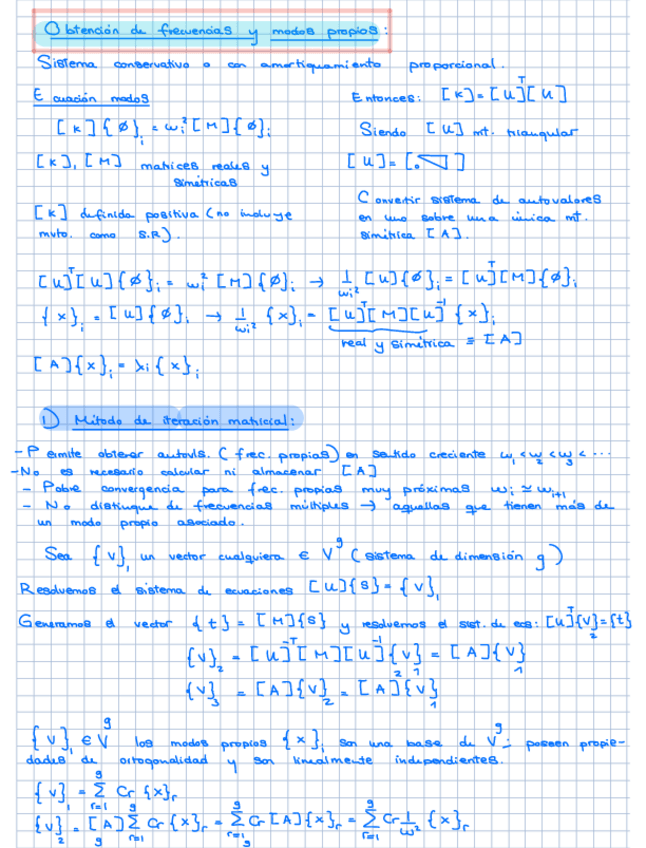 Obtención de frecuencias y modos propios:
Sistema conservativo o con amortiguamiento proporcional.
Ecuación modos
[K]{ø}ᵢ = ωᵢ²[M]{ø}ᵢ
[K], [M] matrices reales y
simétricas
[K] definida positiva (no incluye
mvto. como S.R).
Entonces: [K] = [U]ᵀ[U]
Siendo [U] mt. triangular
[U] = [0◹]
Convertir sistema de autovalores
en uno sobre una única mt.
simétrica [A].
[U]ᵀ[U]{ø}ᵢ = ωᵢ²[M]{ø}ᵢ → 1/ωᵢ² [U]{ø}ᵢ = [U]⁻ᵀ[M]{ø}ᵢ
{x}ᵢ = [U]{ø}ᵢ → 1/ωᵢ² {x}ᵢ = [U]⁻ᵀ[M][U]⁻¹{x}ᵢ
real y simétrica ≡ [A]
[A]{x}ᵢ = λᵢ{x}ᵢ
1) Método de iteración matricial:
- Permite obtener autovls. (frec. propias) en sentido creciente ω₁ < ω₂ < ω₃ < ...
- No es necesario calcular ni almacenar [A]
- Pobre convergencia para frec. propias muy próximas ωᵢ ≃ ωᵢ₊₁
- No distingue de frecuencias múltiples → aquellas que tienen más de
un modo propio asociado.
Sea {v}₁ un vector cualquiera ∈ Vᵍ (sistema de dimensión g)
Resolvemos el sistema de ecuaciones [U]{s} = {v}₁
Generamos el vector {t} = [M]{s} y resolvemos el sist. de ecs: [U]ᵀ{v}₂ = {t}
{v}₂ = [U]⁻ᵀ[M][U]⁻¹{v}₁ = [A]{v}₁
{v}₃ = [A]{v}₂ = [A]²{v}₁
{v}₁ ∈ Vᵍ los modos propios {x}ᵢ son una base de Vᵍ; poseen propie-
dades de ortogonalidad y son linealmente independientes.
{v}₁ = Σᵍᵣ₌₁ Cr {x}ᵣ
{v}₂ = [A] Σᵍᵣ₌₁ Cr {x}ᵣ = Σᵍᵣ₌₁ Cr [A]{x}ᵣ = Σᵍᵣ₌₁ Cr 1/ω² {x}ᵣ